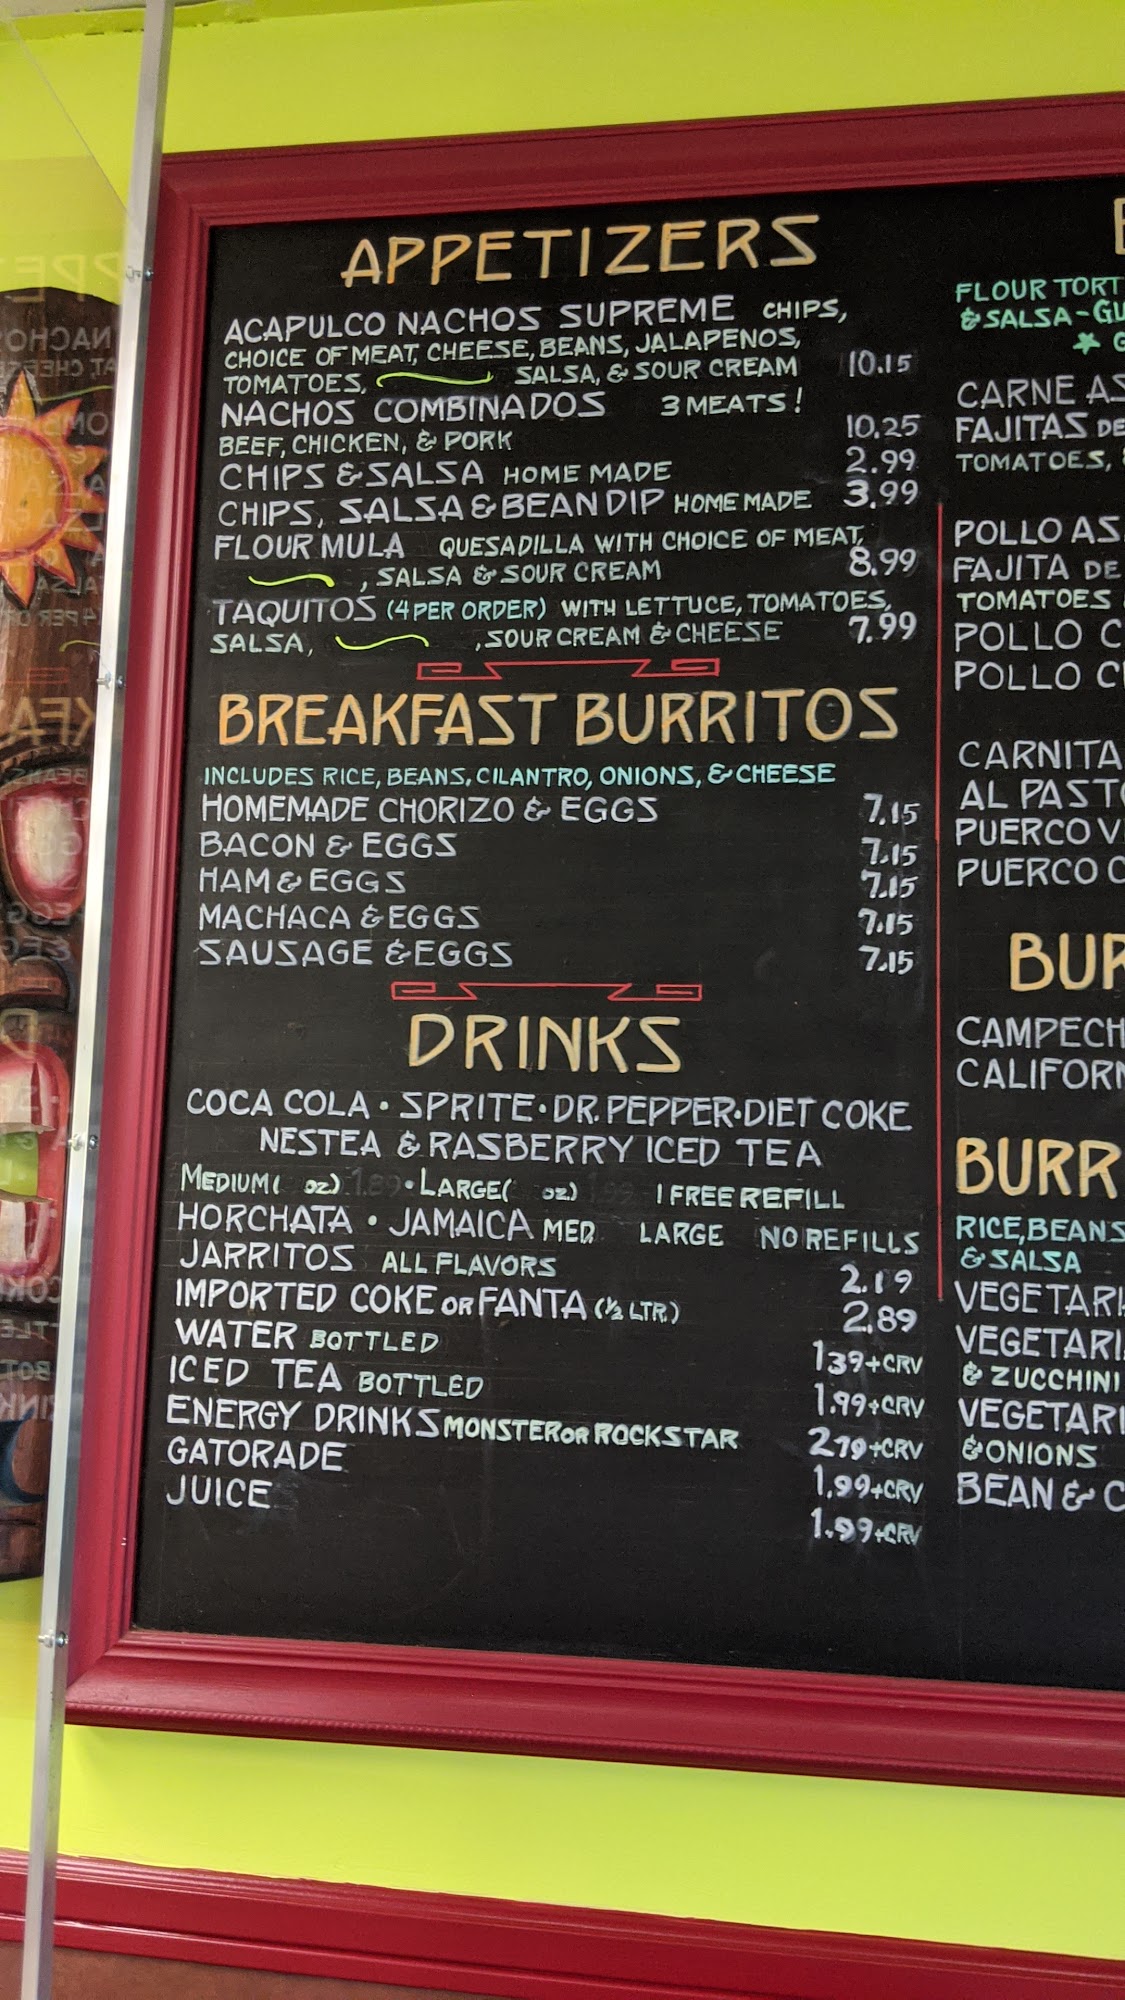 APPETIZERS
ACAPULCO NACHOS SUPREME CHIPS,
CHOICE OF MEAT, CHEESE, BEANS, JALAPENOS,
TOMATOES, SALSA, & SOUR CREAM 10.15
NACHOS COMBINADOS 3 MEATS!
BEEF, CHICKEN, & PORK 10.25
CHIPS & SALSA HOME MADE 2.99
CHIPS, SALSA & BEAN DIP HOME MADE 3.99
FLOUR MULA QUESADILLA WITH CHOICE OF MEAT,
, SALSA & SOUR CREAM 8.99
TAQUITOS (4 PER ORDER) WITH LETTUCE, TOMATOES,
SALSA, , SOUR CREAM & CHEESE 7.99
BREAKFAST BURRITOS
INCLUDES RICE, BEANS, CILANTRO, ONIONS, & CHEESE
HOMEMADE CHORIZO & EGGS 7.15
BACON & EGGS 7.15
HAM & EGGS 7.15
MACHACA & EGGS 7.15
SAUSAGE & EGGS 7.15
DRINKS
COCA COLA • SPRITE • DR. PEPPER • DIET COKE
NESTEA & RASBERRY ICED TEA
MEDIUM ( OZ.) 1.89 • LARGE ( OZ.) 1.99 1 FREE REFILL
HORCHATA • JAMAICA MED LARGE NO REFILLS
JARRITOS ALL FLAVORS 2.19
IMPORTED COKE OR FANTA (½ LTR.) 2.89
WATER BOTTLED 1 39+CRV
ICED TEA BOTTLED 1.99+CRV
ENERGY DRINKS MONSTER OR ROCKSTAR 2 79+CRV
GATORADE 1.99+CRV
JUICE 1.99+CRV
FLOUR TORT
& SALSA - GU
CARNE AS
FAJITAS DE
TOMATOES,
POLLO AS
FAJITA DE
TOMATOES
POLLO C
POLLO C
CARNITA
AL PASTO
PUERCO V
PUERCO C
BUR
CAMPECH
CALIFORN
BURR
RICE, BEANS
& SALSA
VEGETARI
VEGETARI
& ZUCCHINI
VEGETARI
& ONIONS
BEAN & C